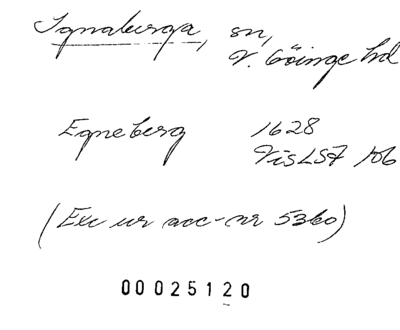 Ignaberga, sn,
V. Göinge hd
Egneberg 1628
VisLSF 106
(Exc ur acc-nr 5360)
00025120